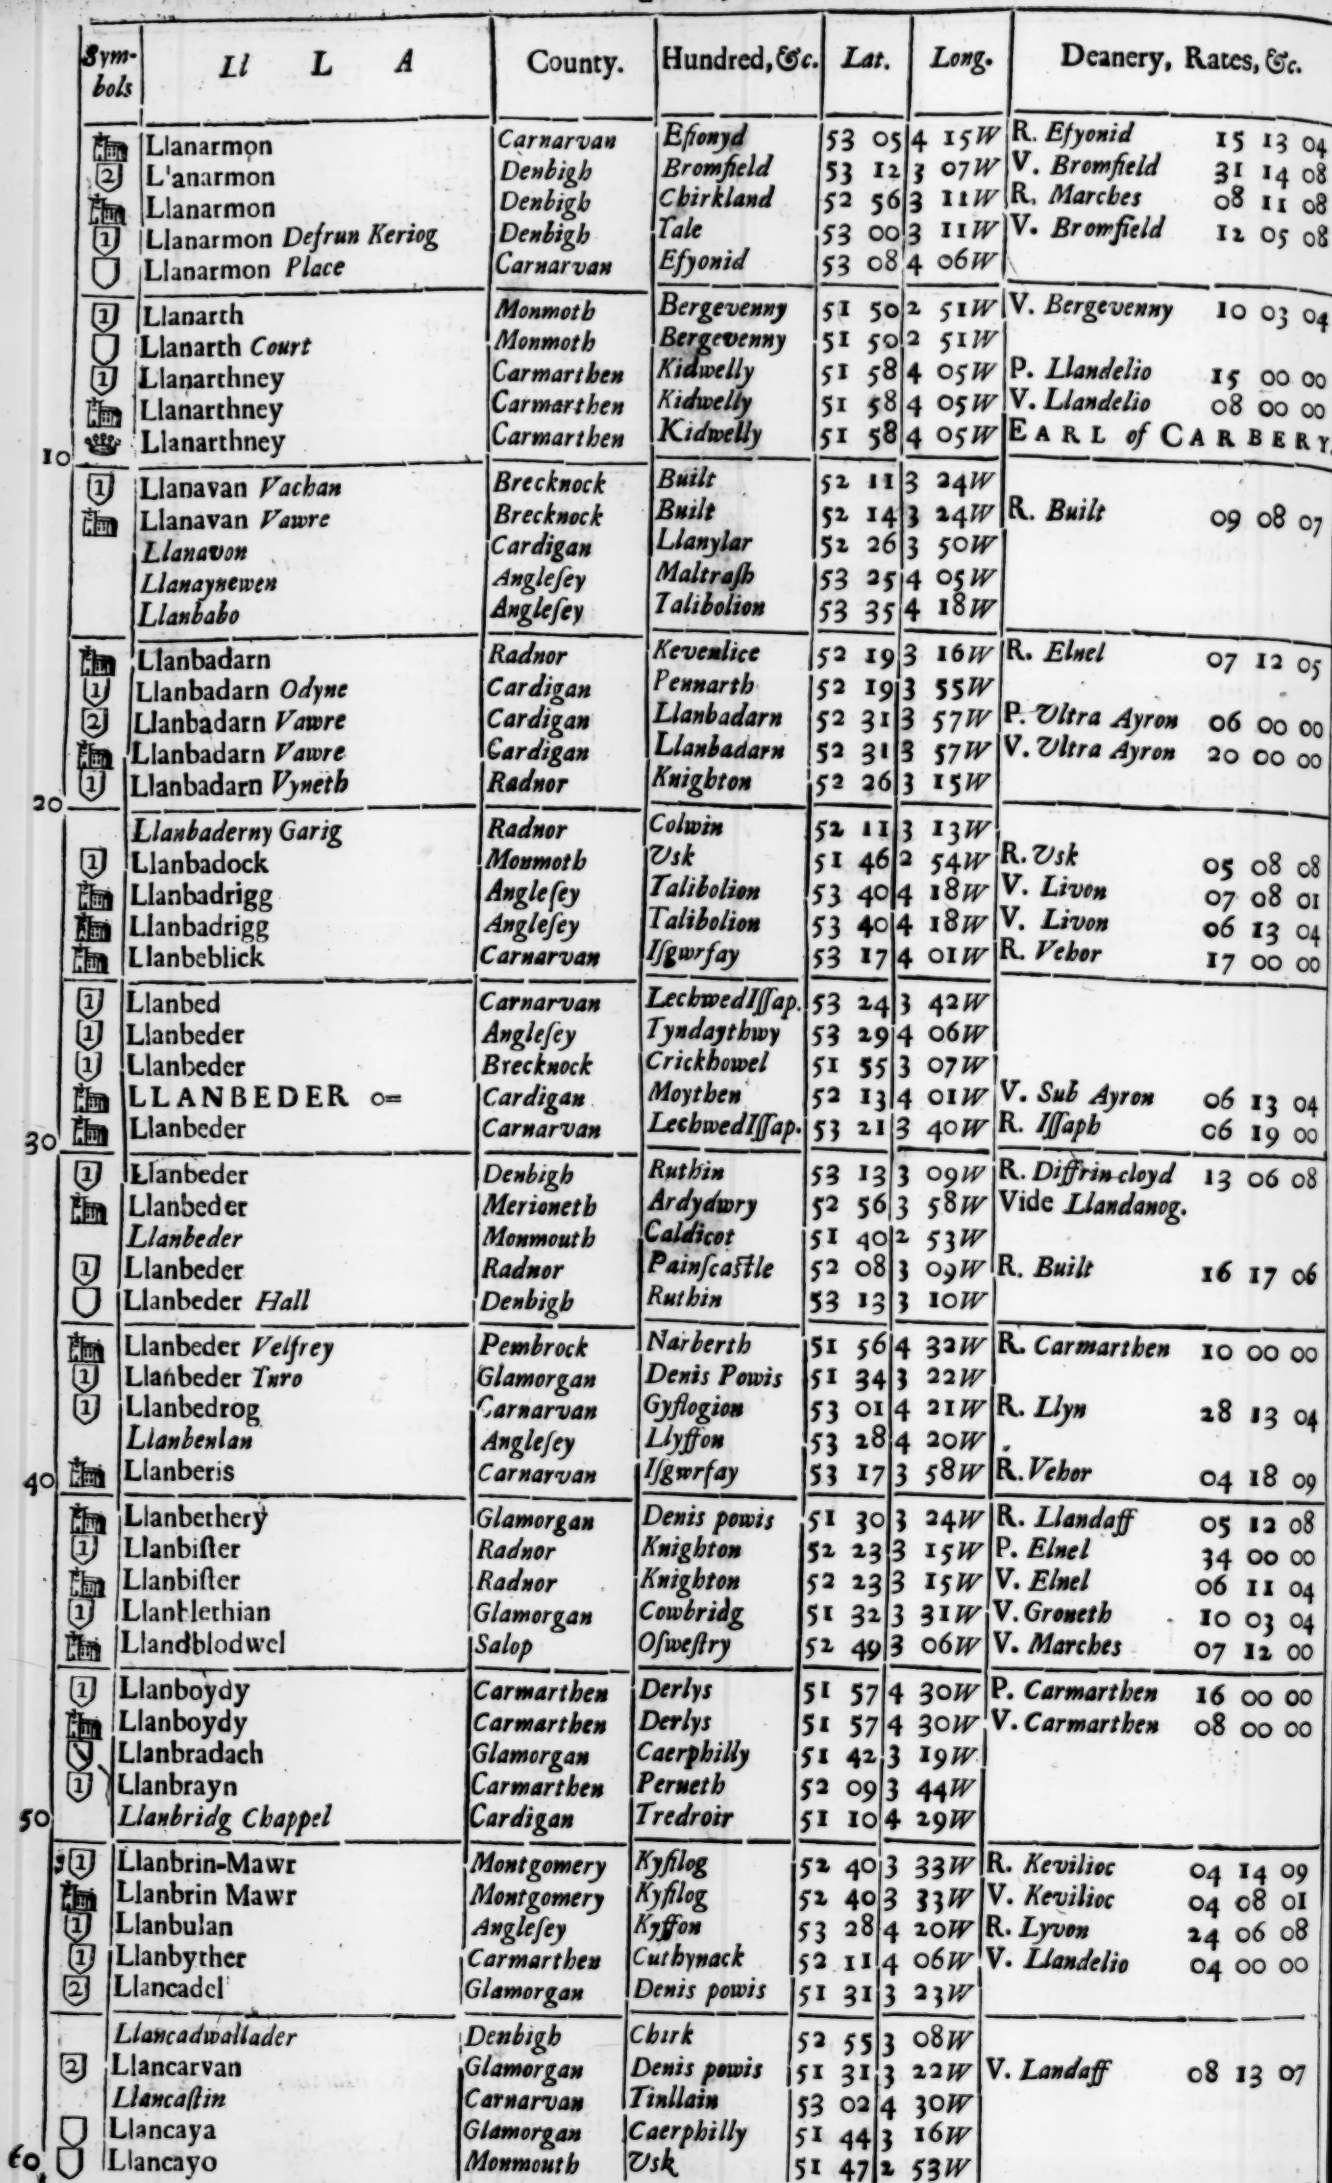 Sym-bols Ll L A County. Hundred, &c. Lat. Long. Deanery, Rates, &c.
Llanarmon Carnarvan Eſionyd 53 05 4 15W R. Eſyonid 15 13 04
2 L'anarmon Denbigh Bromfield 53 12 3 07W V. Bromfield 31 14 08
Llanarmon Denbigh Chirkland 52 56 3 11W R. Marches 08 11 08
1 Llanarmon Defrun Keriog Denbigh Tale 53 00 3 11W V. Bromfield 12 05 08
Llanarmon Place Carnarvan Eſyonid 53 08 4 06W
1 Llanarth Monmoth Bergevenny 51 50 2 51W V. Bergevenny 10 03 04
Llanarth Court Monmoth Bergevenny 51 50 2 51W
1 Llanarthney Carmarthen Kidwelly 51 58 4 05W P. Llandelio 15 00 00
Llanarthney Carmarthen Kidwelly 51 58 4 05W V. Llandelio 08 00 00
10 Llanarthney Carmarthen Kidwelly 51 58 4 05W EARL of CARBERY.
1 Llanavan Vachan Brecknock Built 52 11 3 24W
Llanavan Vawre Brecknock Built 52 14 3 24W R. Built 09 08 07
Llanavon Cardigan Llanylar 52 26 3 50W
Llanaynewen Angleſey Maltraſh 53 25 4 05W
Llanbabo Angleſey Talibolion 53 35 4 18W
Llanbadarn Radnor Kevenlice 52 19 3 16W R. Elnel 07 12 05
1 Llanbadarn Odyne Cardigan Pennarth 52 19 3 55W
2 Llanbadarn Vawre Cardigan Llanbadarn 52 31 3 57W P. Ultra Ayron 06 00 00
Llanbadarn Vawre Cardigan Llanbadarn 52 31 3 57W V. Ultra Ayron 20 00 00
20 1 Llanbadarn Vyneth Radnor Knighton 52 26 3 15W
Llanbaderny Garig Radnor Colwin 52 11 3 13W
1 Llanbadock Monmoth Usk 51 46 2 54W R. Usk 05 08 08
Llanbadrigg Angleſey Talibolion 53 40 4 18W V. Livon 07 08 01
Llanbadrigg Angleſey Talibolion 53 40 4 18W V. Livon 06 13 04
Llanbeblick Carnarvan Iſgwrfay 53 17 4 01W R. Vehor 17 00 00
1 Llanbed Carnarvan Lechwed Iſſap. 53 24 3 42W
1 Llanbeder Angleſey Tyndaythwy 53 29 4 06W
1 Llanbeder Brecknock Crickhowel 51 55 3 07W
LLANBEDER o= Cardigan Moythen 52 13 4 01W V. Sub Ayron 06 13 04
30 Llanbeder Carnarvan Lechwed Iſſap. 53 21 3 40W R. Iſſaph 06 19 00
1 Llanbeder Denbigh Ruthin 53 13 3 09W R. Diffrin-cloyd 13 06 08
Llanbeder Merioneth Ardydwry 52 56 3 58W Vide Llandanog.
Llanbeder Monmouth Caldicot 51 40 2 53W
1 Llanbeder Radnor Painſcaſtle 52 08 3 09W R. Built 16 17 06
Llanbeder Hall Denbigh Ruthin 53 13 3 10W
Llanbeder Velfrey Pembrock Narberth 51 56 4 32W R. Carmarthen 10 00 00
1 Llanbeder Turo Glamorgan Denis Powis 51 34 3 22W
1 Llanbedrog Carnarvan Gyflogion 53 01 4 21W R. Llyn 28 13 04
Llanbenlan Angleſey Llyffon 53 28 4 20W
40 Llanberis Carnarvan Iſgwrfay 53 17 3 58W R. Vehor 04 18 09
Llanbethery Glamorgan Denis powis 51 30 3 24W R. Llandaff 05 12 08
1 Llanbiſter Radnor Knighton 52 23 3 15W P. Elnel 34 00 00
Llanbiſter Radnor Knighton 52 23 3 15W V. Elnel 06 11 04
1 Llanblethian Glamorgan Cowbridg 51 32 3 31W V. Groneth 10 03 04
Llandblodwel Salop Oſweſtry 52 49 3 06W V. Marches 07 12 00
1 Llanboydy Carmarthen Derlys 51 57 4 30W P. Carmarthen 16 00 00
Llanboydy Carmarthen Derlys 51 57 4 30W V. Carmarthen 08 00 00
Llanbradach Glamorgan Caerphilly 51 42 3 19W
1 Llanbrayn Carmarthen Perueth 52 09 3 44W
50 Llanbridg Chappel Cardigan Tredroir 51 10 4 29W
1 Llanbrin-Mawr Montgomery Kyfilog 52 40 3 33W R. Kevilioc 04 14 09
Llanbrin Mawr Montgomery Kyfilog 52 40 3 33W V. Kevilioc 04 08 01
1 Llanbulan Angleſey Kyffon 53 28 4 20W R. Lyvon 24 06 08
1 Llanbyther Carmarthen Cuthynack 52 11 4 06W V. Llandelio 04 00 00
2 Llancadel Glamorgan Denis powis 51 31 3 23W
Llancadwallader Denbigh Chirk 52 55 3 08W
2 Llancarvan Glamorgan Denis powis 51 31 3 22W V. Landaff 08 13 07
Llancaſtin Carnarvan Tinllain 53 02 4 30W
Llancaya Glamorgan Caerphilly 51 44 3 16W
60 Llancayo Monmouth Usk 51 47 2 53W